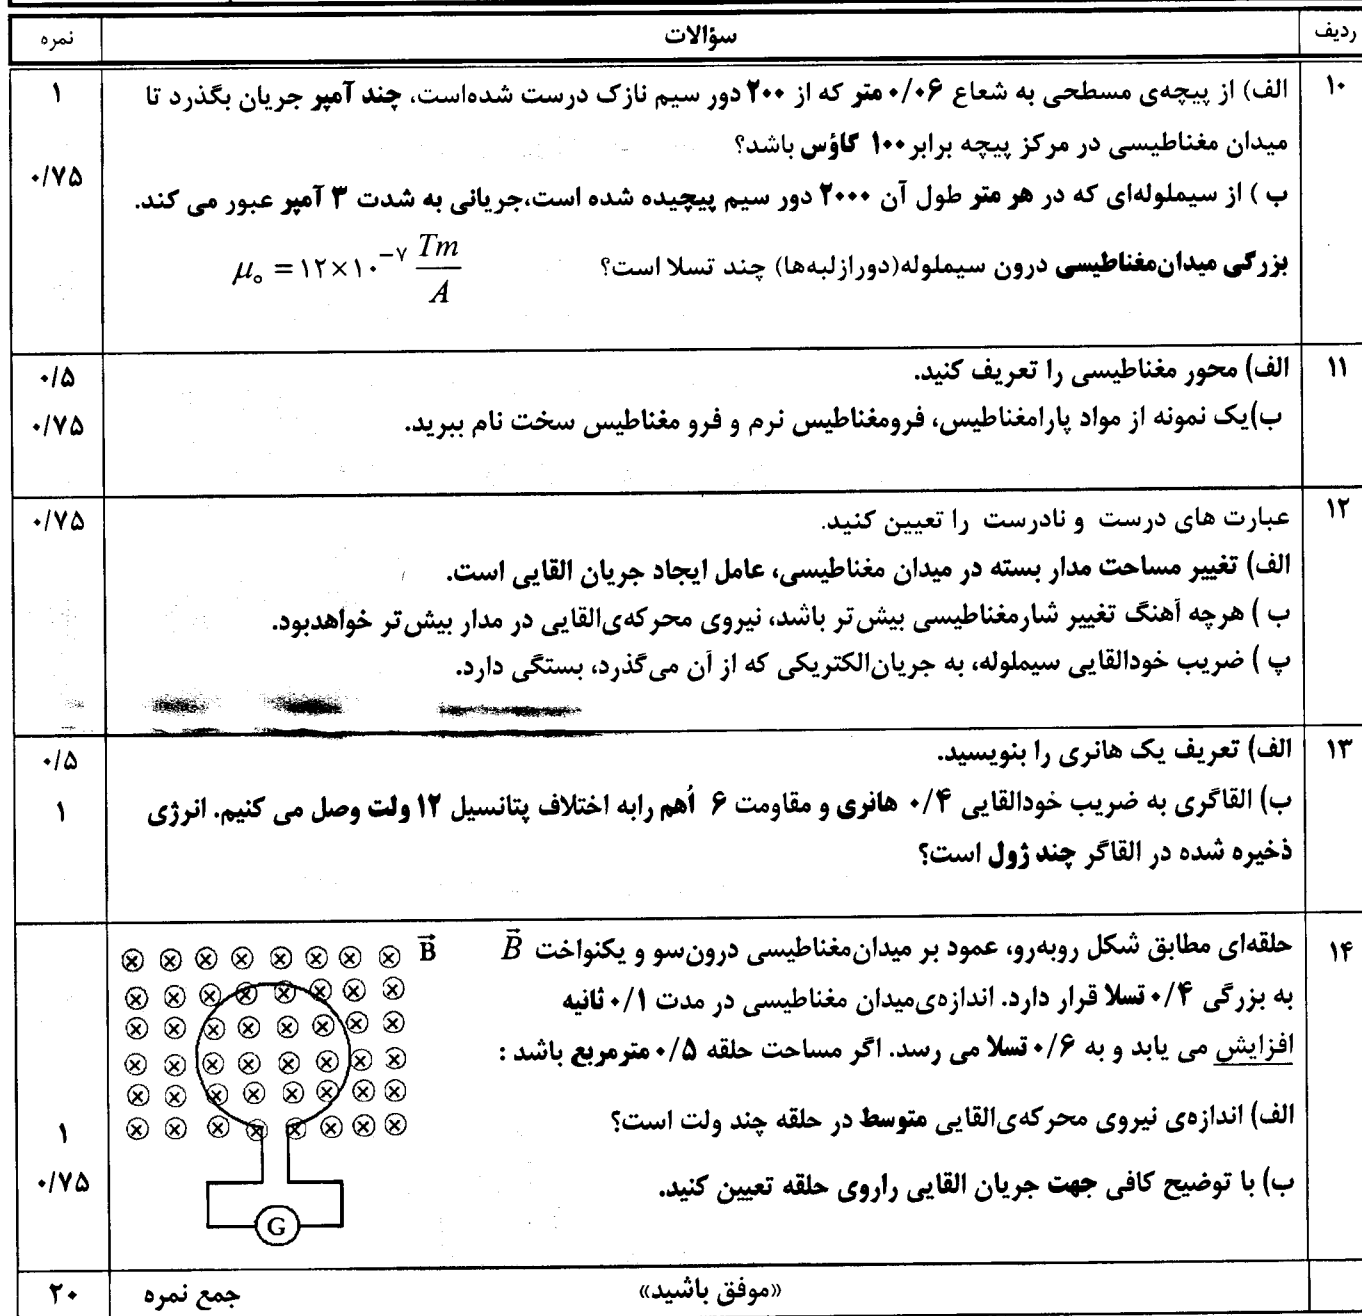 ردیف سؤالات نمره
۱۰ الف) از پیچه‌ی مسطحی به شعاع ۰/۰۶ متر که از ۲۰۰ دور سیم نازک درست شده‌است، چند آمپر جریان بگذرد تا ۱
میدان مغناطیسی در مرکز پیچه برابر ۱۰۰ گاؤس باشد؟
ب ) از سیملوله‌ای که در هر متر طول آن ۲۰۰۰ دور سیم پیچیده شده است،جریانی به شدت ۳ آمپر عبور می کند. ۰/۷۵
بزرگی میدان‌مغناطیسی درون سیملوله(دورازلبه‌ها) چند تسلا است؟ μ₀ = ۱۲×۱۰⁻⁷ Tm/A
۱۱ الف) محور مغناطیسی را تعریف کنید. ۰/۵
ب)یک نمونه از مواد پارامغناطیس، فرومغناطیس نرم و فرو مغناطیس سخت نام ببرید. ۰/۷۵
۱۲ عبارت های درست و نادرست را تعیین کنید. ۰/۷۵
الف) تغییر مساحت مدار بسته در میدان مغناطیسی، عامل ایجاد جریان القایی است.
ب ) هرچه آهنگ تغییر شارمغناطیسی بیش‌تر باشد، نیروی محرکه‌ی‌القایی در مدار بیش‌تر خواهدبود.
پ ) ضریب خودالقایی سیملوله، به جریان‌الکتریکی که از آن می‌گذرد، بستگی دارد.
۱۳ الف) تعریف یک هانری را بنویسید. ۰/۵
ب) القاگری به ضریب خودالقایی ۰/۴ هانری و مقاومت ۶ اُهم رابه اختلاف پتانسیل ۱۲ ولت وصل می کنیم. انرژی ۱
ذخیره شده در القاگر چند ژول است؟
۱۴ حلقه‌ای مطابق شکل روبه‌رو، عمود بر میدان‌مغناطیسی درون‌سو و یکنواخت B⃗ B⃗
به بزرگی ۰/۴ تسلا قرار دارد. اندازه‌ی‌میدان مغناطیسی در مدت ۰/۱ ثانیه
افزایش می یابد و به ۰/۶ تسلا می رسد. اگر مساحت حلقه ۰/۵ مترمربع باشد :
الف) اندازه‌ی نیروی محرکه‌ی‌القایی متوسط در حلقه چند ولت است؟ ۱
ب) با توضیح کافی جهت جریان القایی راروی حلقه تعیین کنید. ۰/۷۵
G
«موفق باشید» جمع نمره ۲۰